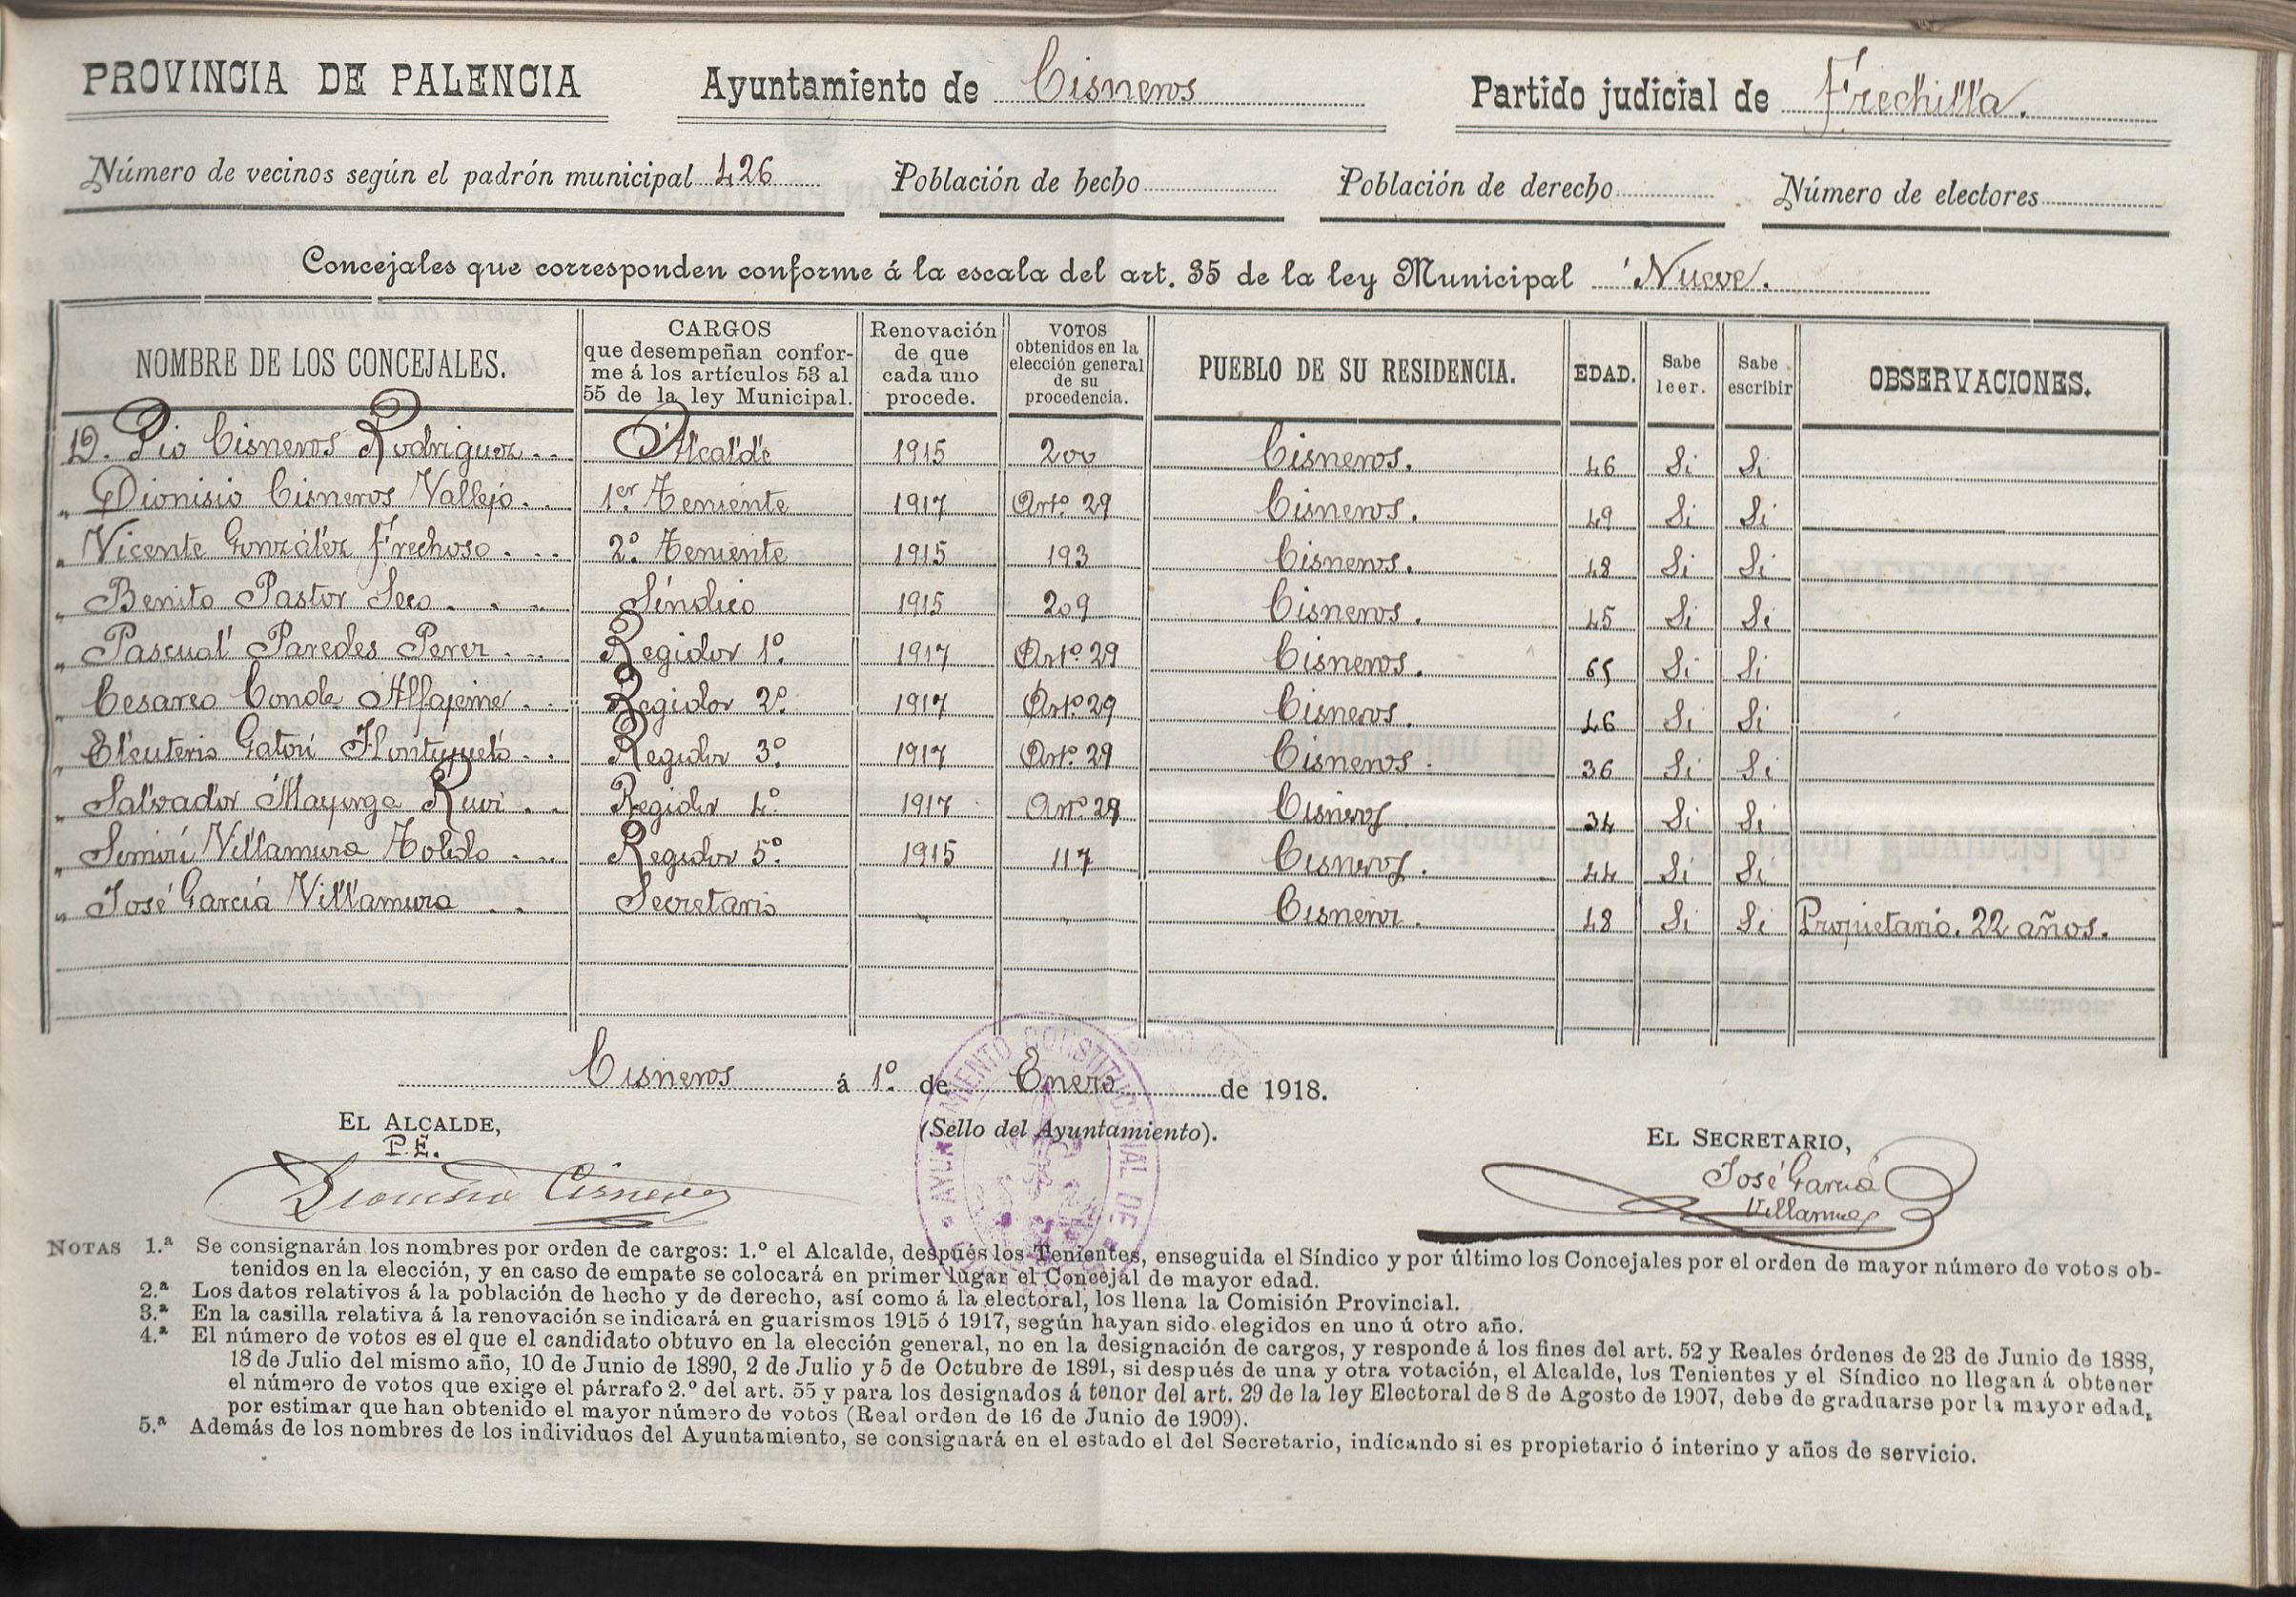 PROVINCIA DE PALENCIA Ayuntamiento de Cisneros Partido judicial de Frechilla.
Número de vecinos según el padrón municipal 426 Población de hecho Población de derecho Número de electores
Concejales que corresponden conforme á la escala del art. 35 de la ley Municipal Nueve.
NOMBRE DE LOS CONCEJALES. CARGOS que desempeñan conforme á los artículos 53 al 55 de la ley Municipal. Renovación de que cada uno procede. VOTOS obtenidos en la elección general de su procedencia. PUEBLO DE SU RESIDENCIA. EDAD. Sabe leer. Sabe escribir OBSERVACIONES.
D. Pio Cisneros Rodriguez Alcalde 1915 200 Cisneros. 46 Si Si
" Dionisio Cisneros Vallejo 1er Teniente 1917 Artº 29 Cisneros. 49 Si Si
" Vicente González Frechoso 2º Teniente 1915 193 Cisneros. 48 Si Si
" Benito Pastor Seco Síndico 1915 209 Cisneros. 45 Si Si
" Pascual Paredes Perez Regidor 1º 1917 Artº 29 Cisneros. 65 Si Si
" Cesareo Conde Alfageme Regidor 2º 1917 Artº 29 Cisneros. 46 Si Si
" Eleuterio Gatón Regidor 3º 1917 Artº 29 Cisneros. 36 Si Si
" Salvador Mayorga Regidor 4º 1917 Artº 29 Cisneros 34 Si Si
" Simón Villamuza Toledo Regidor 5º 1915 117 Cisneros. 44 Si Si
" José García Villamuza Secretario " " Cisneros. 48 Si Si Propietario. 22 años.
Cisneros á 1º de Enero de 1918.
EL ALCALDE,
P.E.
Dionisio Cisneros
(Sello del Ayuntamiento).
AYUNTAMIENTO CONSTITUCIONAL DE
EL SECRETARIO,
José García
Villamuza
NOTAS 1.ª Se consignarán los nombres por orden de cargos: 1.º el Alcalde, después los Tenientes, enseguida el Síndico y por último los Concejales por el orden de mayor número de votos ob-
tenidos en la elección, y en caso de empate se colocará en primer lugar el Concejal de mayor edad.
2.ª Los datos relativos á la población de hecho y de derecho, así como á la electoral, los llena la Comisión Provincial.
3.ª En la casilla relativa á la renovación se indicará en guarismos 1915 ó 1917, según hayan sido elegidos en uno ú otro año.
4.ª El número de votos es el que el candidato obtuvo en la elección general, no en la designación de cargos, y responde á los fines del art. 52 y Reales órdenes de 23 de Junio de 1888,
18 de Julio del mismo año, 10 de Junio de 1890, 2 de Julio y 5 de Octubre de 1891, si después de una y otra votación, el Alcalde, los Tenientes y el Síndico no llegan á obtener
el número de votos que exige el párrafo 2.º del art. 55 y para los designados á tenor del art. 29 de la ley Electoral de 8 de Agosto de 1907, debe de graduarse por la mayor edad,
por estimar que han obtenido el mayor número de votos (Real orden de 16 de Junio de 1909).
5.ª Además de los nombres de los individuos del Ayuntamiento, se consignará en el estado el del Secretario, indicando si es propietario ó interino y años de servicio.